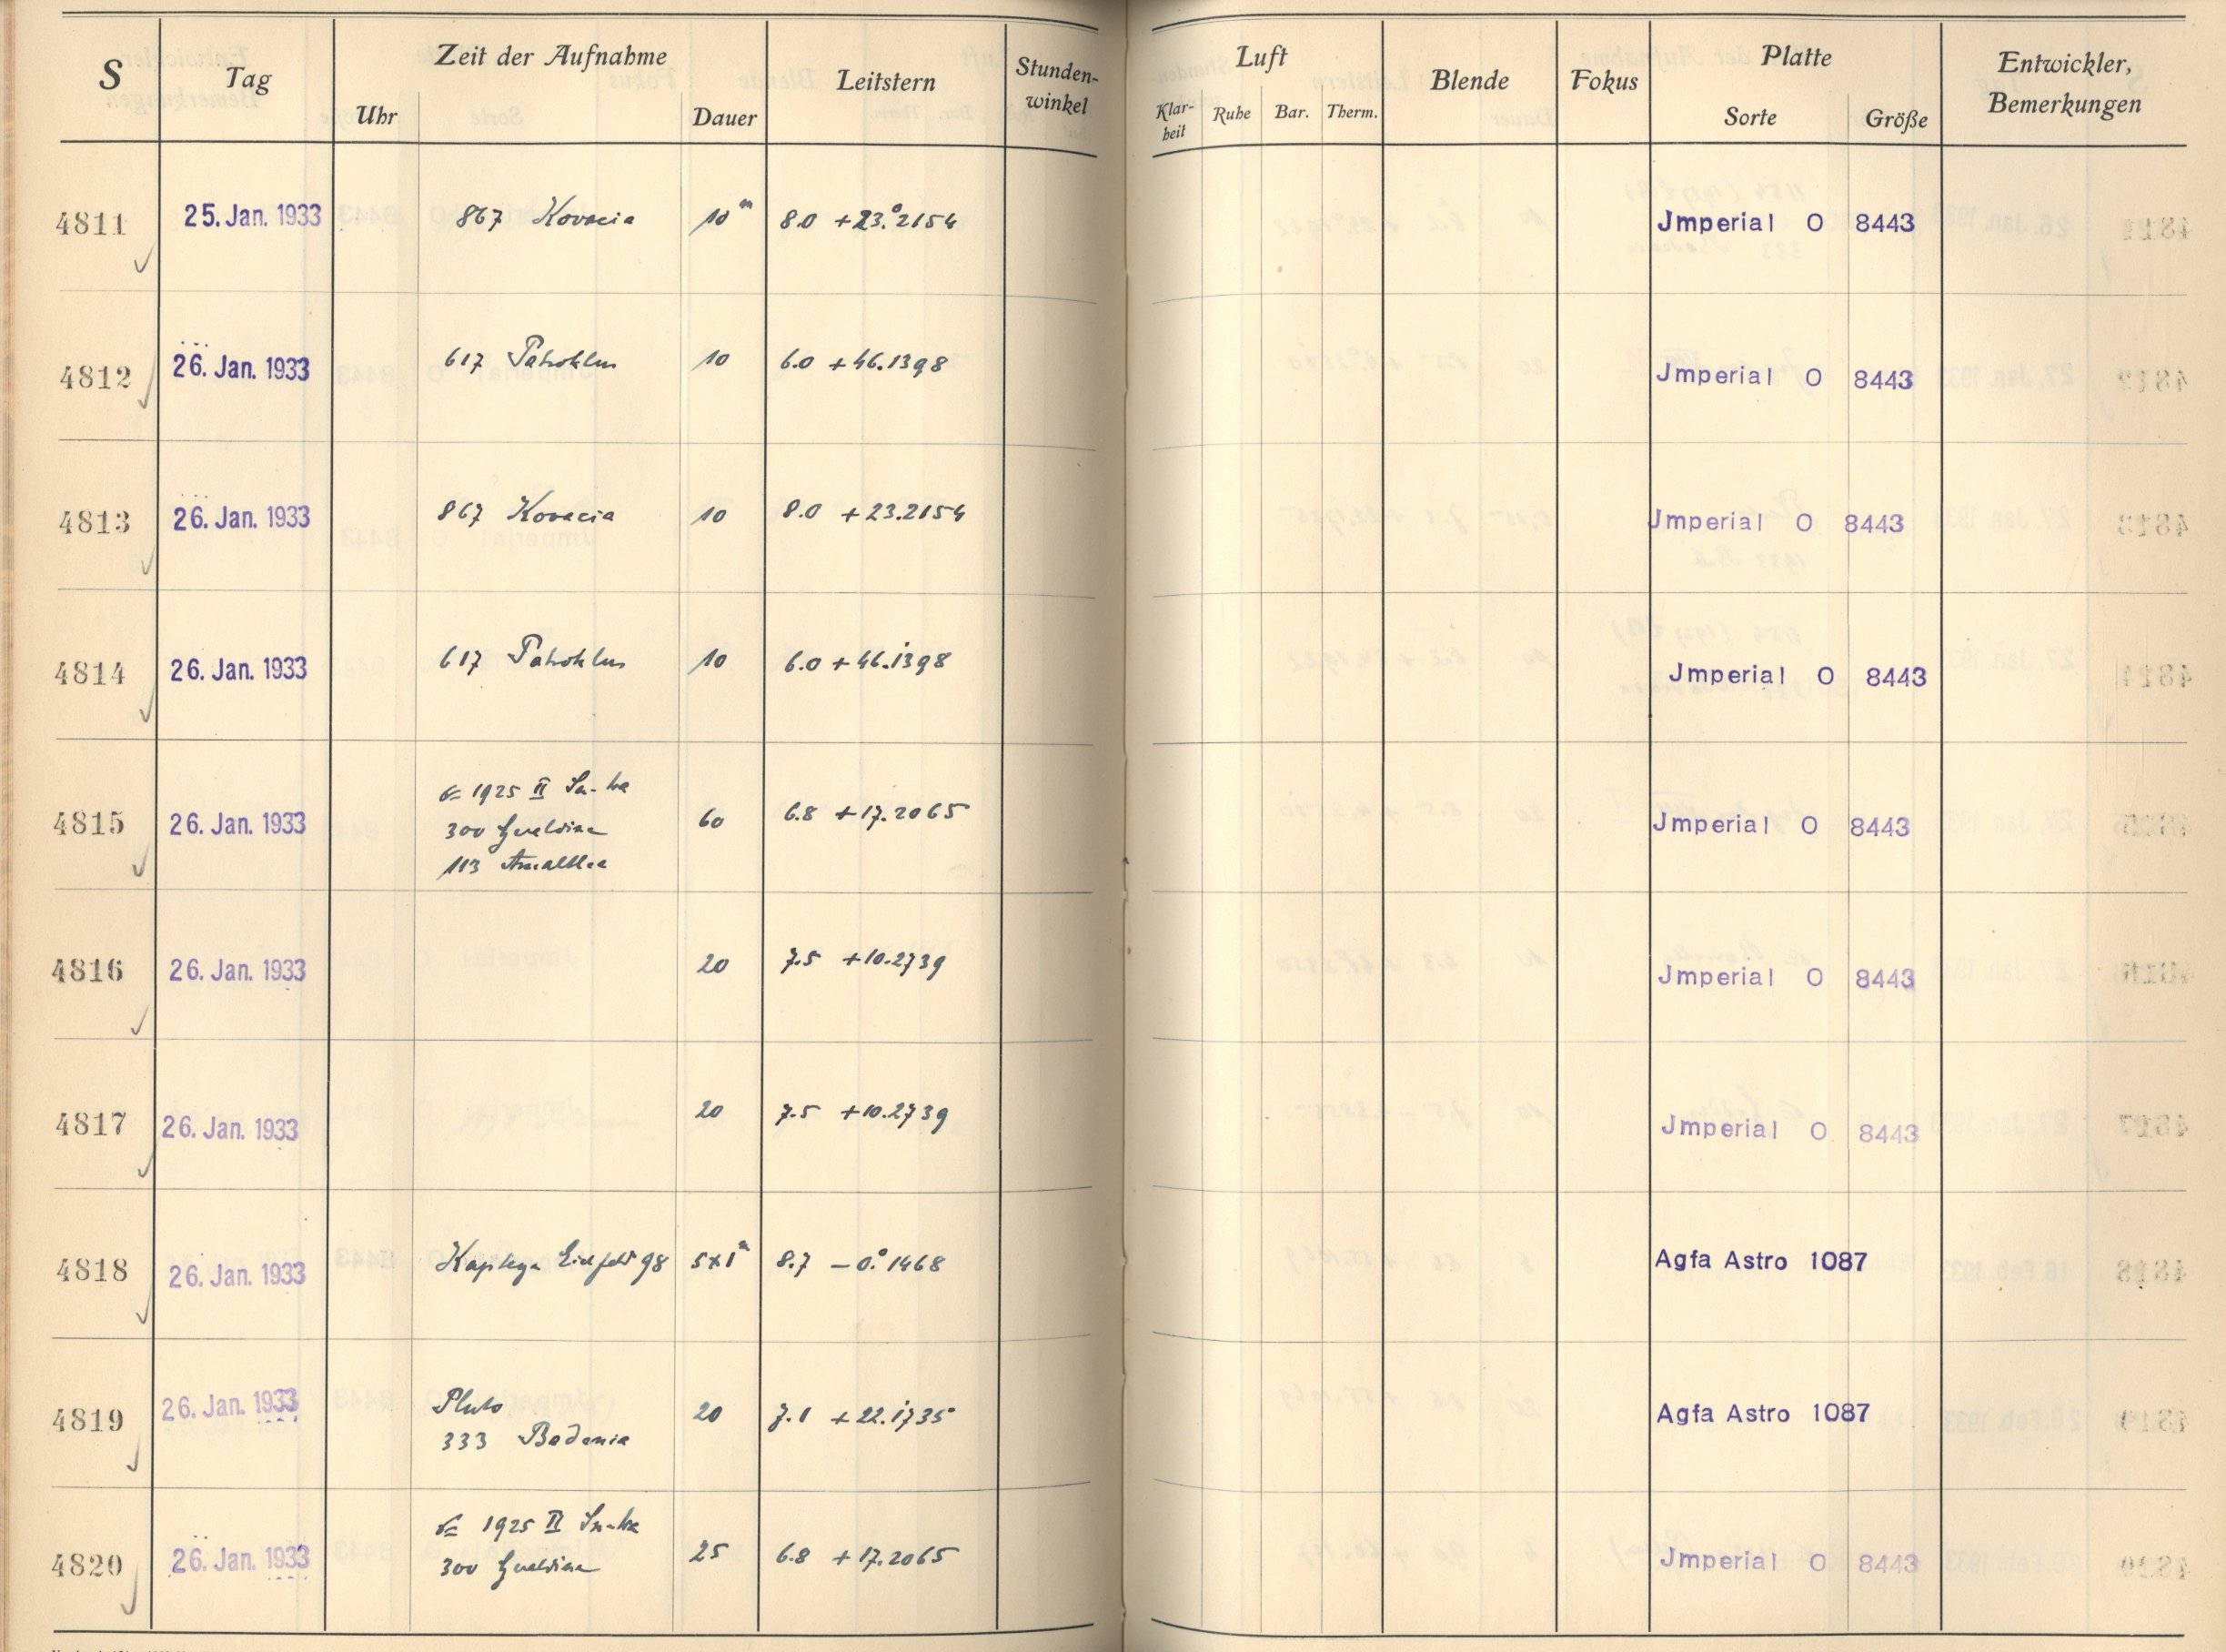 S Tag Zeit der Aufnahme Leitstern Stunden-winkel Luft Blende Fokus Platte Entwickler, Bemerkungen
Uhr Dauer Klar-heit Ruhe Bar. Therm. Sorte Größe
4811 25. Jan. 1933 867 Kovacia 10m 8.0 +23.°2154 Jmperial O 8443
4812 26. Jan. 1933 617 Patroklus 10 6.0 +46.1398 Jmperial O 8443
4813 26. Jan. 1933 867 Kovacia 10 8.0 +23.2154 Jmperial O 8443
4814 26. Jan. 1933 617 Patroklus 10 6.0 +46.1398 Jmperial O 8443
1925 II
4815 26. Jan. 1933 300 Geraldina 60 6.8 +17.2065 Jmperial O 8443
113 Amalthea
4816 26. Jan. 1933 20 7.5 +10.2739 Jmperial O 8443
4817 26. Jan. 1933 20 7.5 +10.2739 Jmperial O 8443
4818 26. Jan. 1933 Kapteyn Eichfeld 98 5x1m 8.7 -0.°1468 Agfa Astro 1087
4819 26. Jan. 1933 Pluto 20 7.1 +22.1735 Agfa Astro 1087
333 Badenia
1925 II
4820 26. Jan. 1933 300 Geraldina 25 6.8 +17.2065 Jmperial O 8443